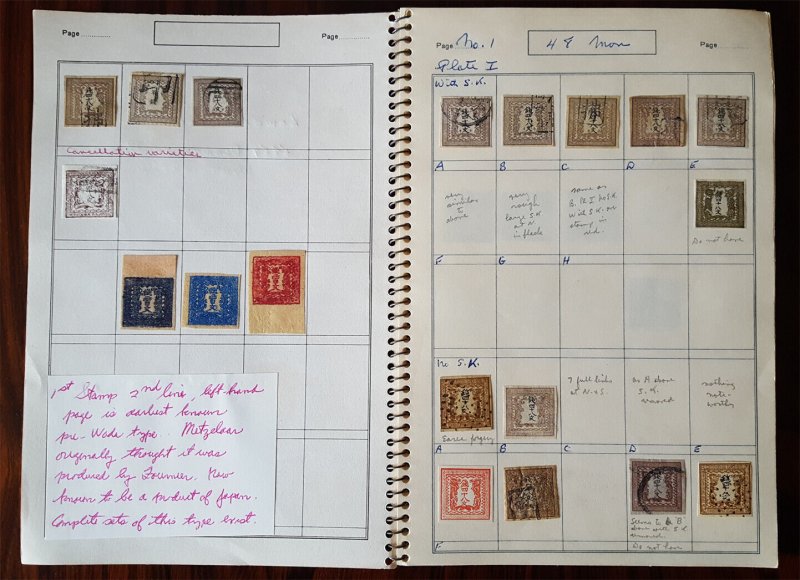 Page
Page
Cancellation varieties
1st Stamp 2nd line, left-hand
page is earliest known
pre-Wada type. Metzelaar
originally thought it was
produced by Fournier. Now
known to be a product of Japan.
Complete sets of this type exist.
Page No. 1
48 Mon
Page
Plate I
With S.K.
A B C D E
very similar to above
very rough large SK at N. in flack
same as B. Pl I No S.K. With S.K. or stamp in red.
Do not have
F G H
No S.K.
7 full links at N. + S.
as A above S.K. removed
nothing note-worthy
Early forgery
A B C D E
Seems to be B above with S.K. removed
Do not have
F